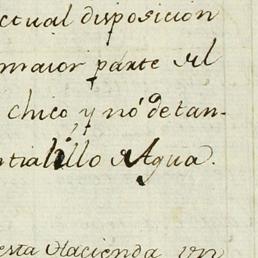 ctual disposicion
maior parte del
chico, y nó de tan-
ntialillo de Agua.
esta Hacienda un